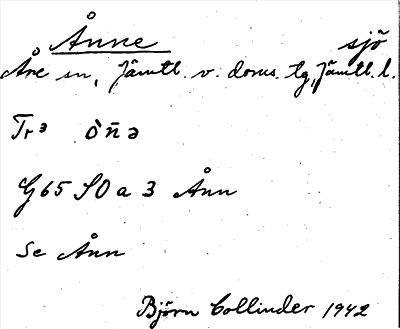 Ånne sjö
Åre sn, Jämtl. v. doms. tg, Jämtl. l.
Tr³ ò̄n̄ə
G65 SO a 3 Ånn
Se Ånn
Björn Collinder 1942